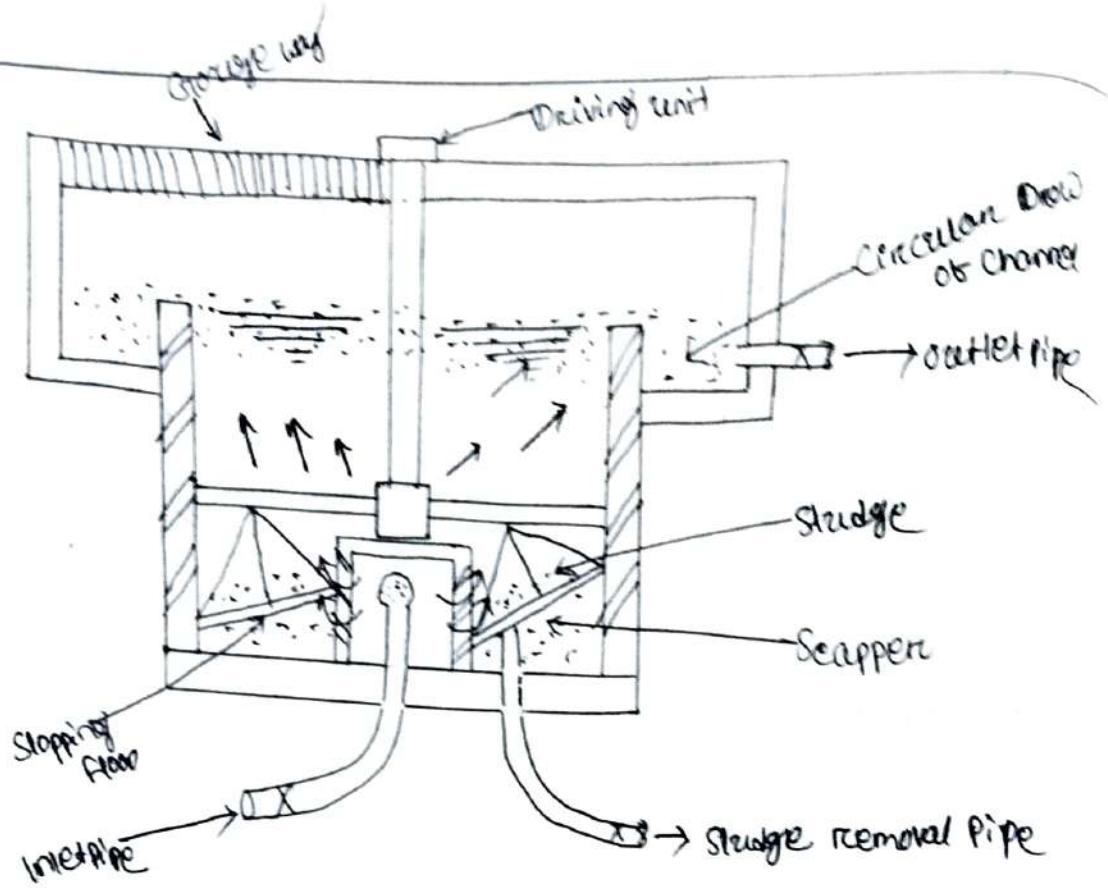 Driving unit
Circular Draw
of Channel
outlet pipe
Sludge
Scapper
Slopping
floor
Inlet pipe
Sludge removal pipe